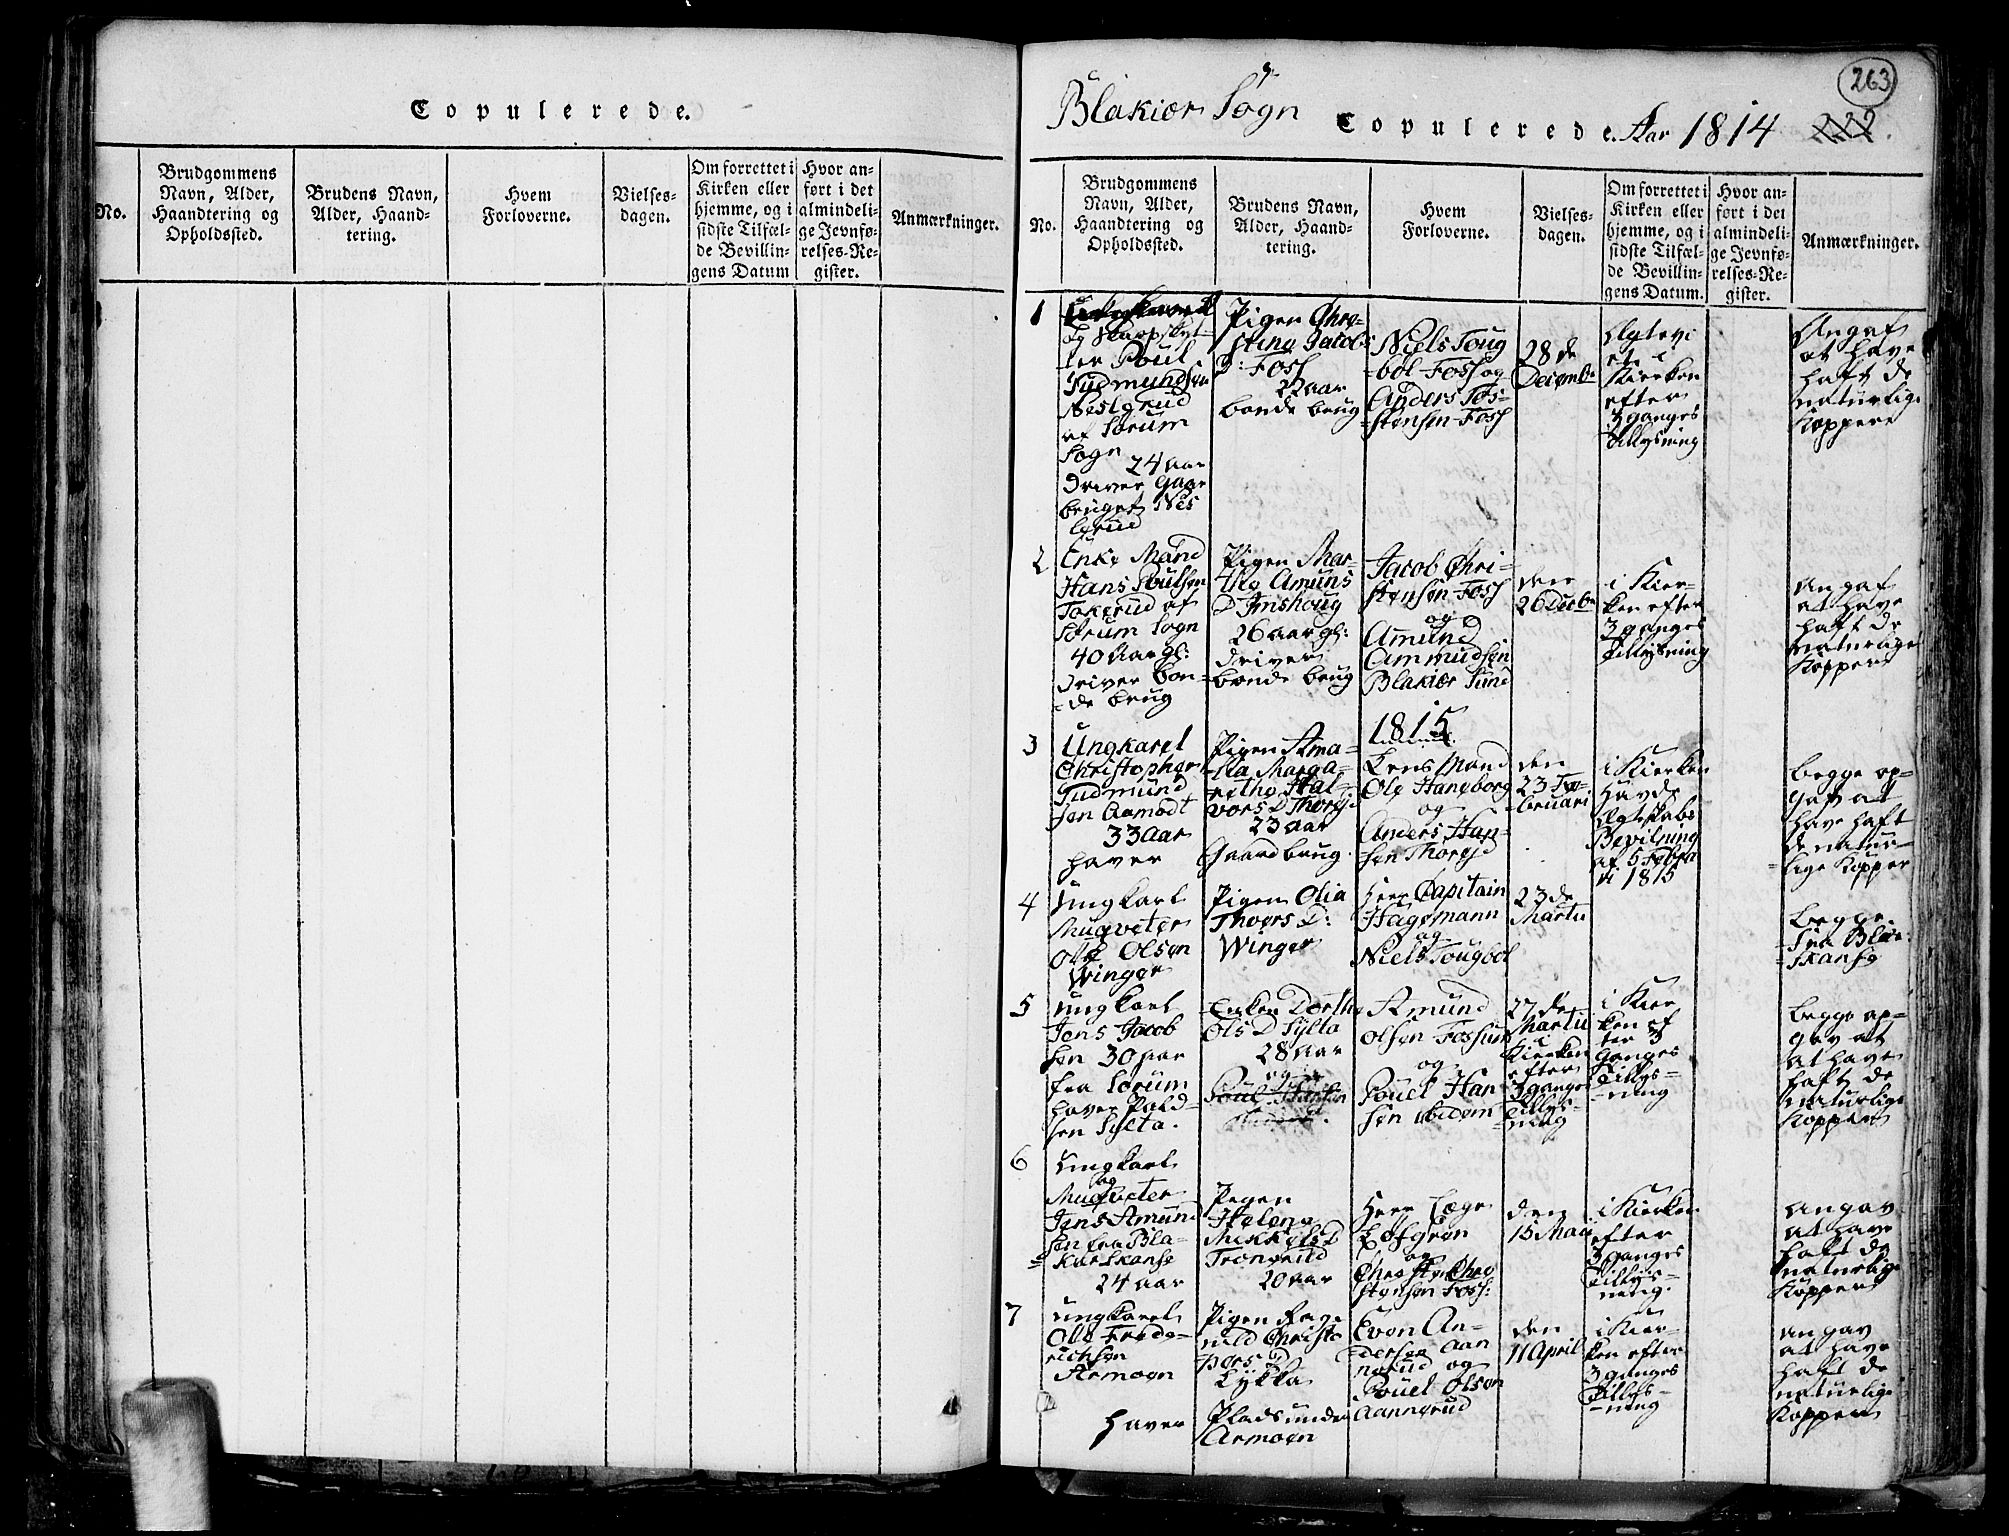 Copulerede.
No.
Brudgommens
Navn, Alder,
Haandtering og
Opholdssted.
Brudens Navn,
Alder, Haand-
tering.
Hvem
Forloverne.
Vielses-
dagen.
Om forrettet i
Kirken eller
hjemme, og i
sidste Tilfæl-
de Bevillin-
gens Datum
Hvor an-
ført i det
almindeli-
ge Jevnfø-
relses-Re-
gister.
Anmærkninger.
263
Blakier Sogn
Copulerede. Aar 1814
222
No.
Brudgommens
Navn, Alder,
Haandtering og
Opholdssted.
Brudens Navn,
Alder, Haand-
tering.
Hvem
Forloverne.
Vielses-
dagen.
Om forrettet i
Kirken eller
hjemme, og i
sidste Tilfæl-
de Bevillin-
gens Datum.
Hvor an-
ført i det
almindeli-
ge Jevnfø-
relses-Re-
gister.
Anmærkninger.
1
og Skarpskyt-
ter Poul
Gudmundsen
Neslerud
af Sørum
Sogn
24 aar
driver gaar
bruget Nes
lerud
Pigen Chre-
stine Jacobs
D: Foss
22 aar
bonde brug
Niels Toug
-bøl Foss og
Anders Tos-
-stensen Foss
28 de
Decemb
Ægtevi
ete i
Kierken
efter
3 ganges
tillysning
Angaf
at have
haft de
naturlige
Kopper
2
Enke Mand
Hans Poulsen
Tokerud af
Sørum Sogn
40 Aar gl:
driver bon-
-de brug
Pigen Mar-
the Amuns
D Imshoug
26 aar gl:
driver
bonde brug
Jacob Chri-
stensen Foss
og
Amund
Ammudsen
Blakier Sund
den
26 Decbr
i Kier-
ken efter
3 ganges
tillysning
angaf
at have
haft de
naturlige
Kopper
1815
3
Ungkarel
Christopher
Gudmund
sen Aamodt
33 Aar
haver
Pigen Ama-
-lia Marga-
rethe Hal-
vors D Thorsjd
23 aar
Gaardbrug.
Lens Mand
Ole Haneborg
og
Anders Han-
sen Thorsjd
den
23 Fe-
-bruari
i Kierken
havde
Ægteskabs
Bevilning
af 5 Febra
ri 1815
begge op-
gaf at
have haft
de natur-
-lige Kopper
4
Ungkarl
Musqveter
Ole Olsen
Winger
Pigen Olia
Thoers D:
Winger
Herr Capitain
Hagemann
og
Niels Tougbøl
23 de
Martii
begge
fra Blak:
-skanse
5
Ungkarl
Jens Jacob
sen 30 aar
fra Sørum
haver Pald-
sen Sylta.
Enken Dorthe
Ols D Sylta
28 aar
og
Poul Hansen
Amund
Olsen Fossum
og
Pouel Han
sen ibidem
27 de
Martii
i
Kierken
efter
3 ganges
tillys-
-ning
i Kier
ken ef
ter 3
Ganges
Tillys-
-ning
begge op-
gav at
at have
haft de
naturlige
Kopper
6
Ungkarl
og
Musqveter
Jens Amund
sen fra Bla-
-kierskanse
24 aar
Pigen
Helene
Mikkels D
Tronerud
20 aar
Herr Læge
Løfgren
og
Christen Chre
stensen Foss:
den
15 Maii
i Kierken
efter
3 ganges
Tillys-
ning.
angav
at have
haft de
naturlige
Kopper
7
Ungkarel
Ole Frede-
richsen
Armoen
haver
Pigen Rage
nild Christo
pers D
Lykka
Plads under
Armoen
Even An-
dersen Aan
nerud og
Pouel Olsen
Aannerud
den
11 April
i Kier-
ken efter
3 ganges
Tillys-
-ning
angav
at have
haft de
naturlige
Kopper